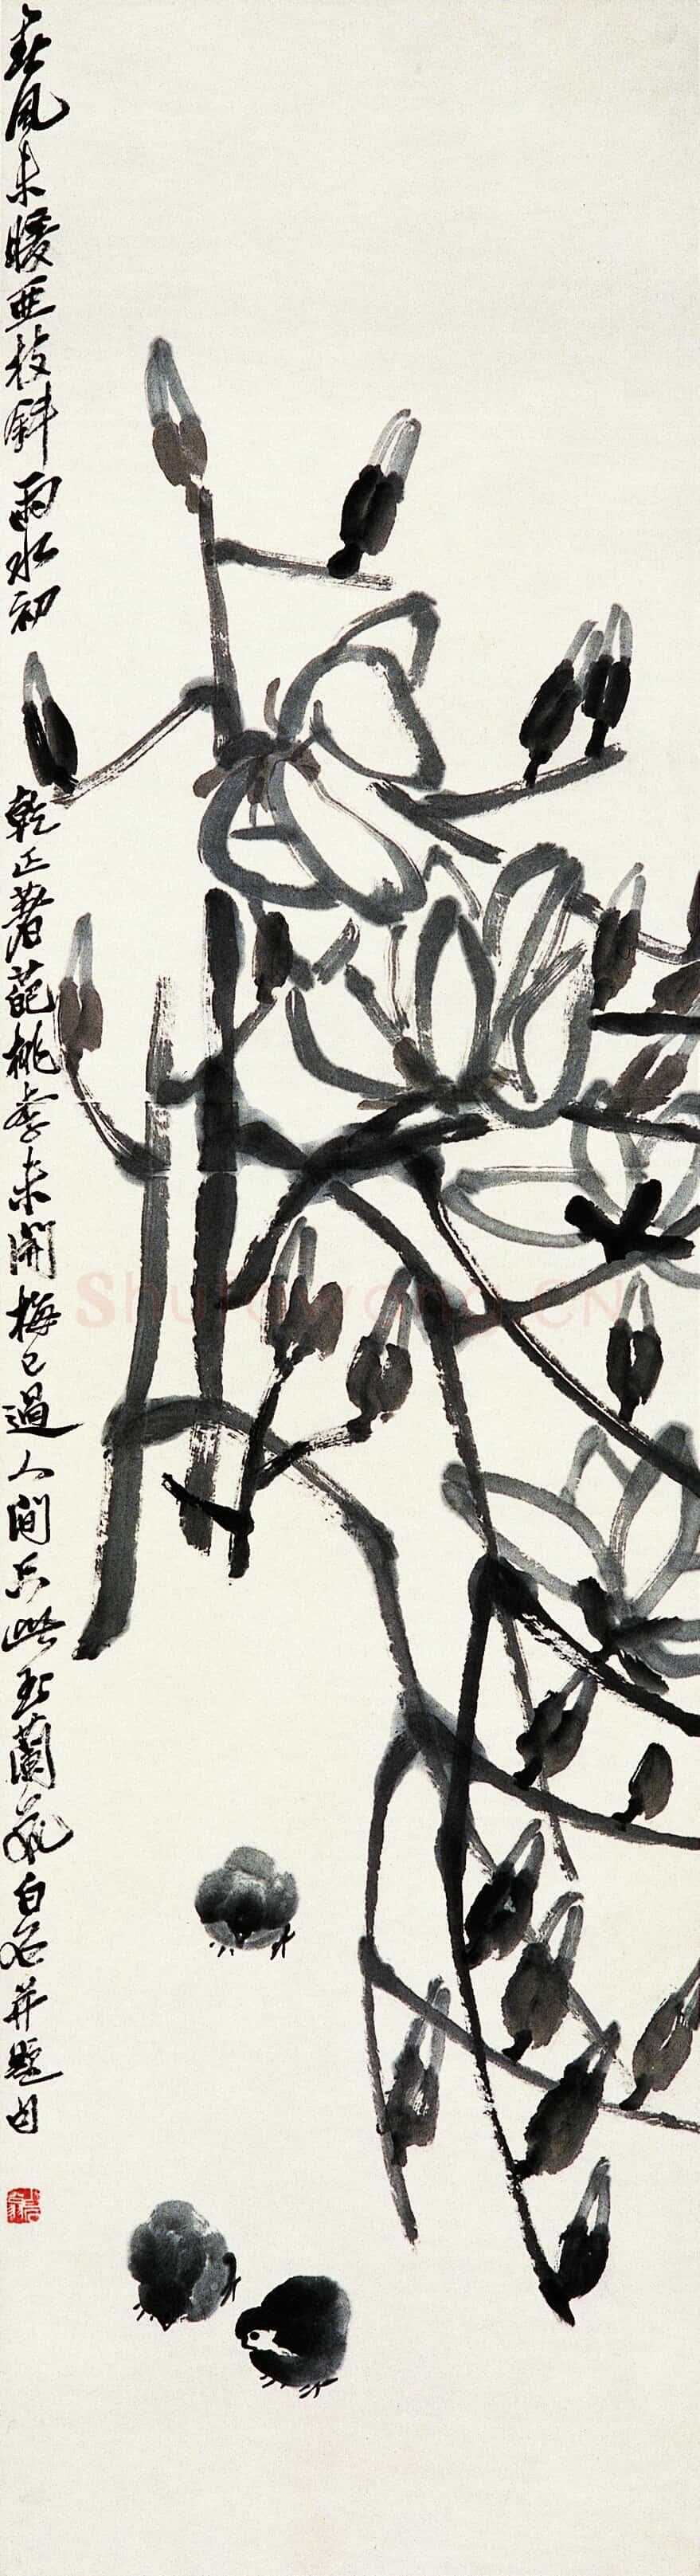 春風未暖亞枝斜雨水初乾正著葩桃李未開梅已過人間只此玉蘭花白石并題句
Shufawang.CN